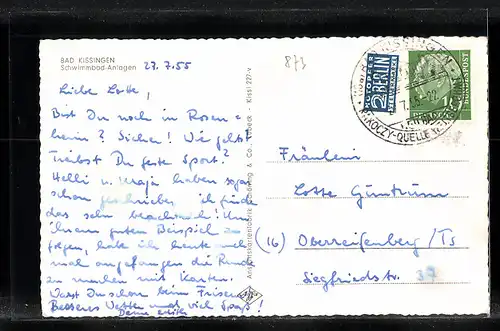 BAD KISSINGEN
Schwimmbad-Anlagen
27.7.55
873
Liebe Lotte,
Bist Du noch in Rosen=
heim? Sicher! Wie geht's?
Treibst Du feste Sport?
Helli u. haben sogar
schon geschrieben, ich finde
das sehr beachtlich! Um
ihrem guten Beispiel zu
folgen, habe ich heute auch
mal angefangen die Runde
zu machen mit Karten.
Warst Du schon beim Friseur?
Besseres Wetter und viel Spaß!
Deine
Kissi 227 v
NOTOPFER
2 BERLIN
STEUERMARKE
DEUTSCHE BUNDESPOST
10
BAD KISSINGEN
RAKOCZY-QUELLE
Fräulein
Lotte Guntrum
(16) Oberreifenberg/Ts
Siegfriedstr. 37